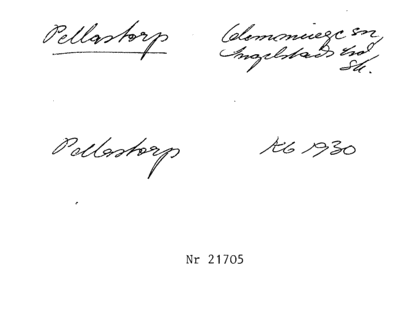 Pellastorp Glemminge sn,
Ingelstads hd
Sk.
Pellastorp Kb 1930
Nr 21705